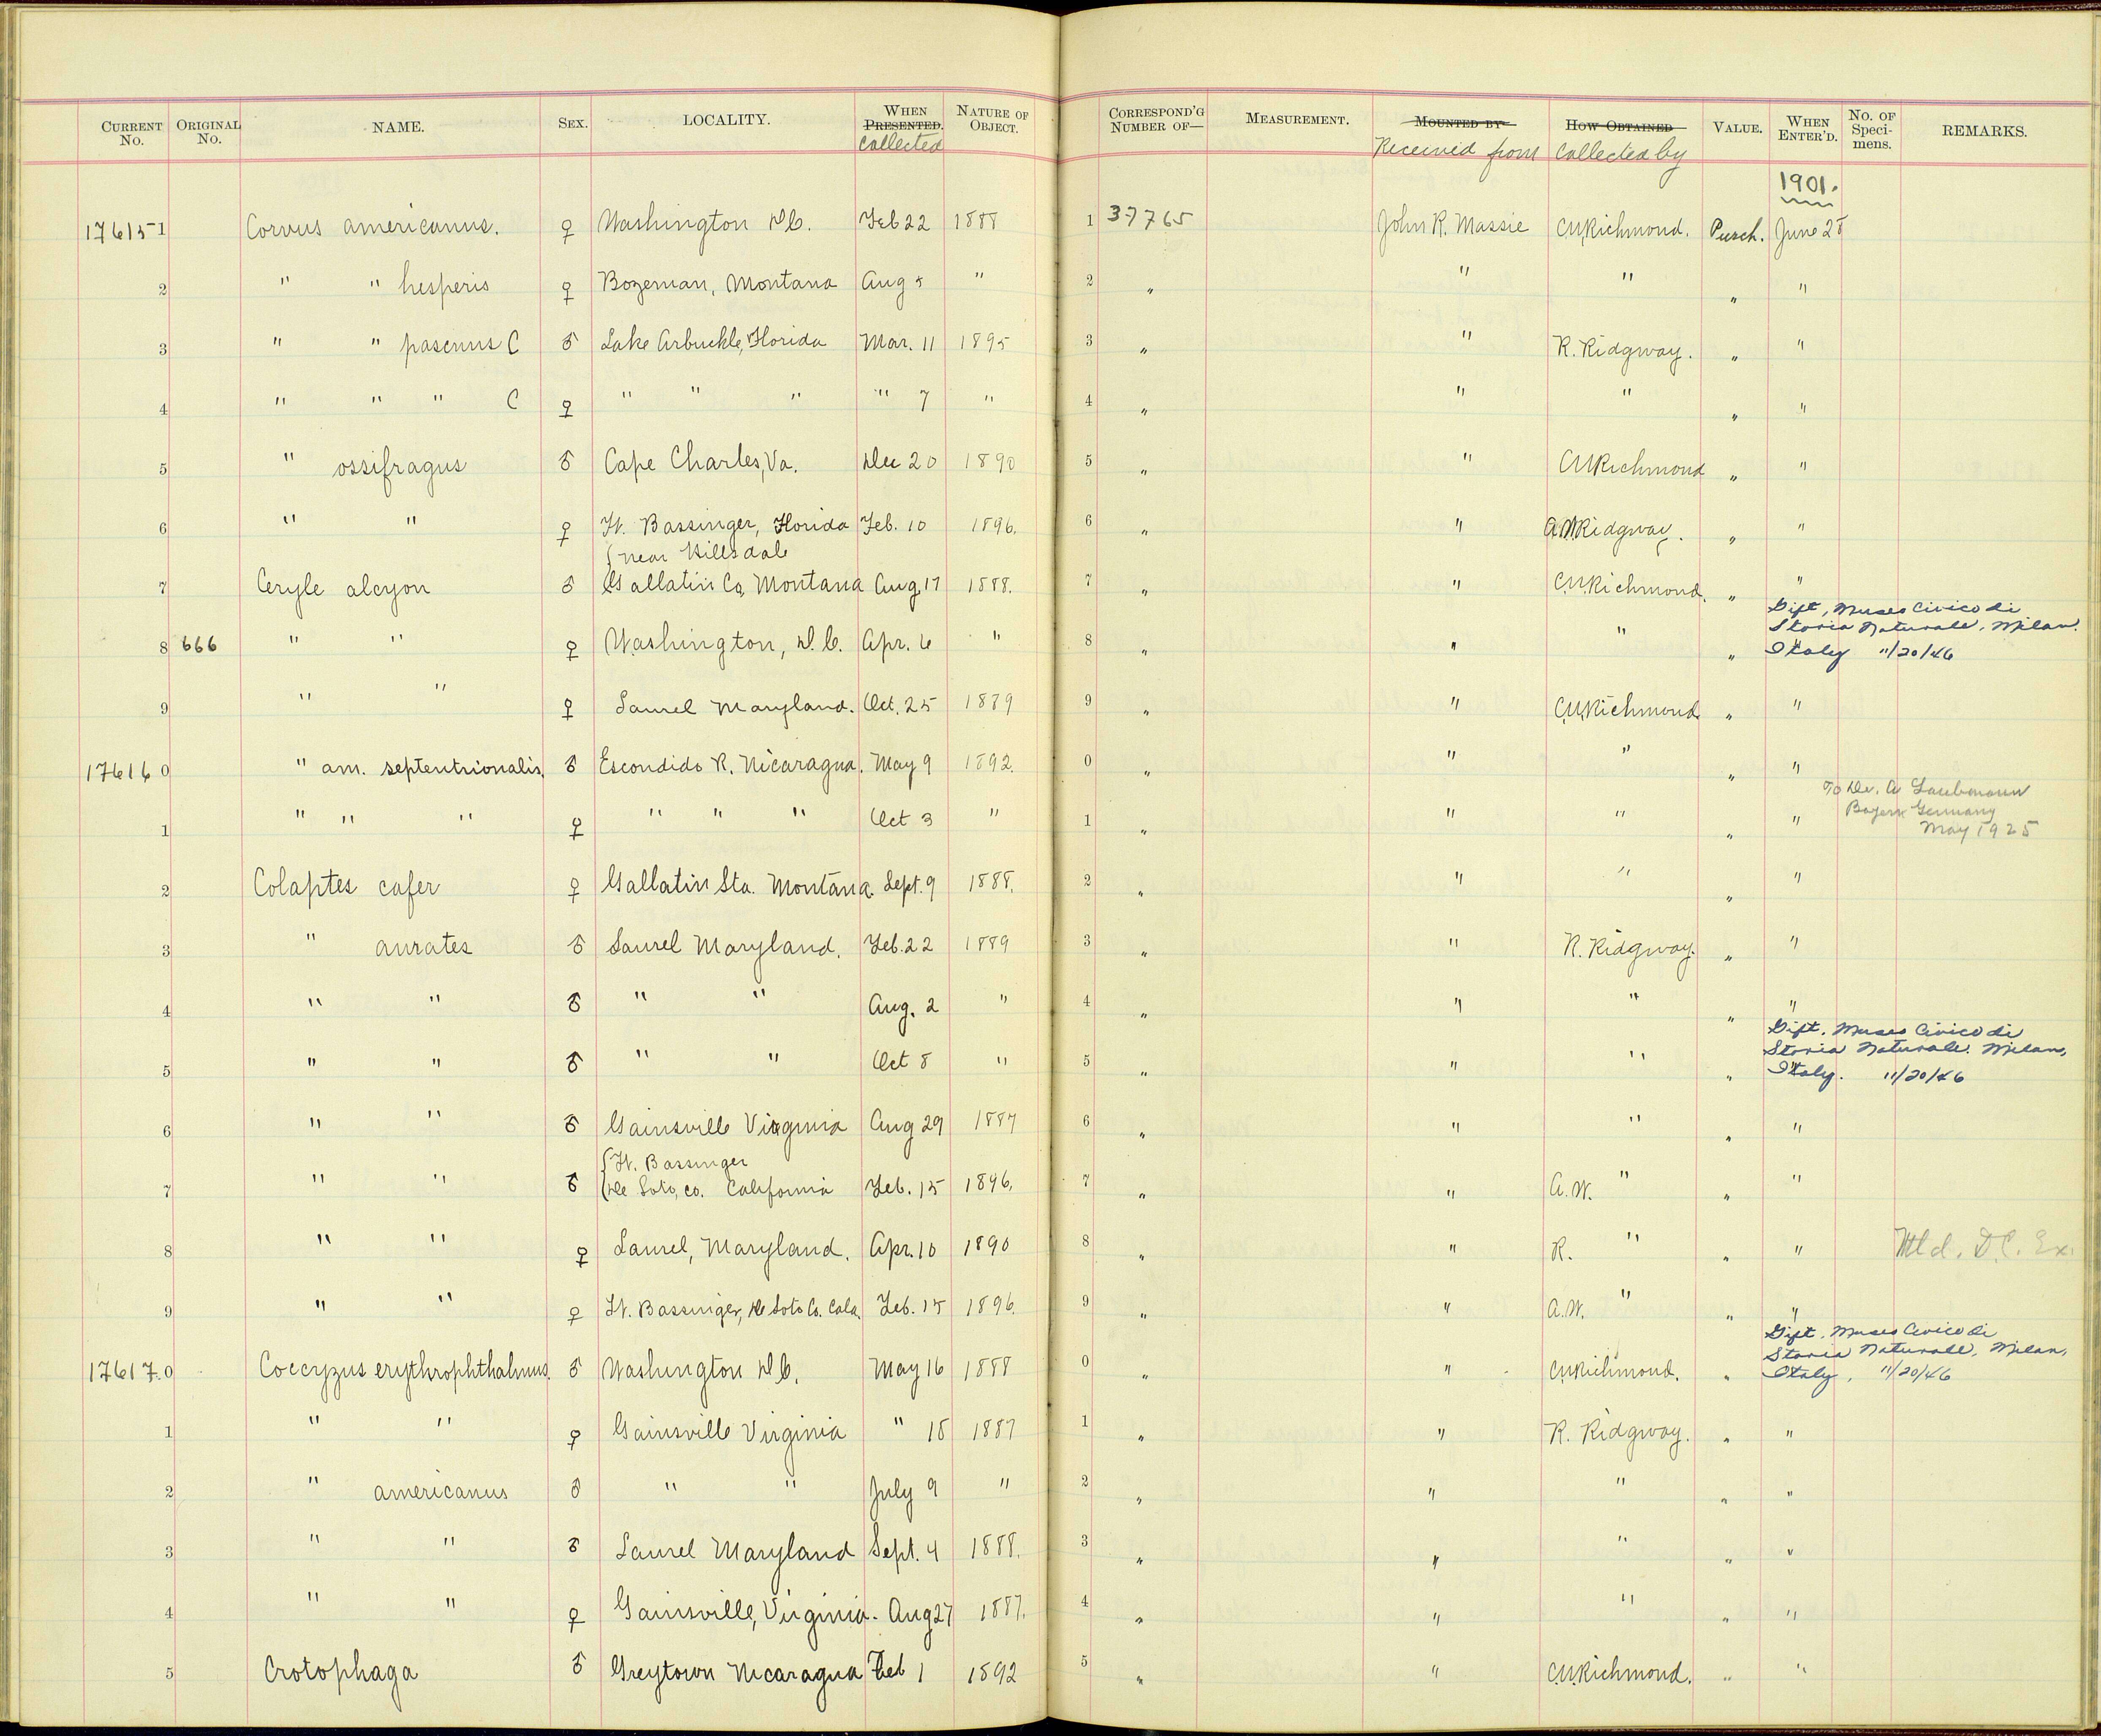 CURRENT No. ORIGINAL No. NAME. SEX. LOCALITY. WHEN PRESENTED. Collected NATURE OF OBJECT. CORRESPOND'G NUMBER OF— MEASUREMENT. MOUNTED BY Received from HOW OBTAINED Collected by VALUE. WHEN ENTER'D. No. OF Speci-mens. REMARKS.
1901.
176151 Corvus americanus. ♀ Washington D.C. Feb 22 1888 1 37765 John R. Massie C.W.Richmond. Purch. June 28
2 " " hesperis ♀ Bozeman, Montana Aug 5 " 2 " " " " "
3 " " pascuus C ♂ Lake Arbuckle, Florida Mar. 11 1895 3 " " R. Ridgway. " "
4 " " " C ♀ " " " " 7 " 4 " " " " "
5 " ossifragus ♂ Cape Charles, Va. Dec 20 1890 5 " " C.W.Richmond " "
6 " " ♀ Ft. Bassinger, Florida Feb. 10 1896. 6 " " A.W.Ridgway. " "
{near Hillsdale
7 Ceryle alcyon ♂ Gallatin Co, Montana Aug, 17 1888. 7 " " C.W.Richmond. " "
Gift, Museo Civico di
Storia Naturale, Milan.
8 666 " " ♀ Washington, D.C. Apr. 6 " 8 " " " " " Italy 11/20/46
9 " " ♀ Laurel Maryland. Oct. 25 1889 9 " " C.W.Richmond " "
176160 " am. septentrionalis. ♂ Escondido R. Nicaragua. May 9 1892. 0 " " " " "
To Dr. A Laubmann
Bayern Germany
May 1925
1 " " " ♀ " " " Oct 3 " 1 " " " " "
2 Colaptes cafer ♀ Gallatin Sta. Montana. Sept. 9 1888. 2 " " " " "
3 " aurates ♂ Laurel Maryland. Feb. 22 1889 3 " " R. Ridgway. " "
4 " " ♂ " " Aug. 2 " 4 " " " " "
Gift. Museo Civico di
Storia Naturale. Milan,
5 " " ♂ " " Oct 8 " 5 " " " " " Italy. 11/20/46
6 " " ♂ Gainsville Virginia Aug 29 1887 6 " " " " "
{Ft. Bassinger
7 " " ♂ (De Soto, co. California Feb. 15 1896. 7 " " A.W. " " "
8 " " ♀ Laurel, Maryland. Apr. 10 1890 8 " " R. " " " Mtd. D.C. Ex.
9 " " ♀ Ft. Bassinger, De Soto Co. Cala. Feb. 15 1896. 9 " " A.W. " " "
Gift. Museo Civico di
Storia Naturale, Milan,
176170 Coccyzus erythrophthalmus. ♂ Washington D.C. May 16 1888 0 " " C.W.Richmond. " Italy, 11/20/46
1 " " ♀ Gainsville Virginia " 18 1887 1 " " R. Ridgway. " "
2 " americanus ♂ " " July 9 " 2 " " " " "
3 " " ♂ Laurel Maryland Sept. 4 1888. 3 " " " " "
4 " " ♀ Gainsville, Virginia. Aug 27 1887. 4 " " " " "
5 Crotophaga ♂ Greytown Nicaragua Feb 1 1892 5 " " C.W.Richmond. " "